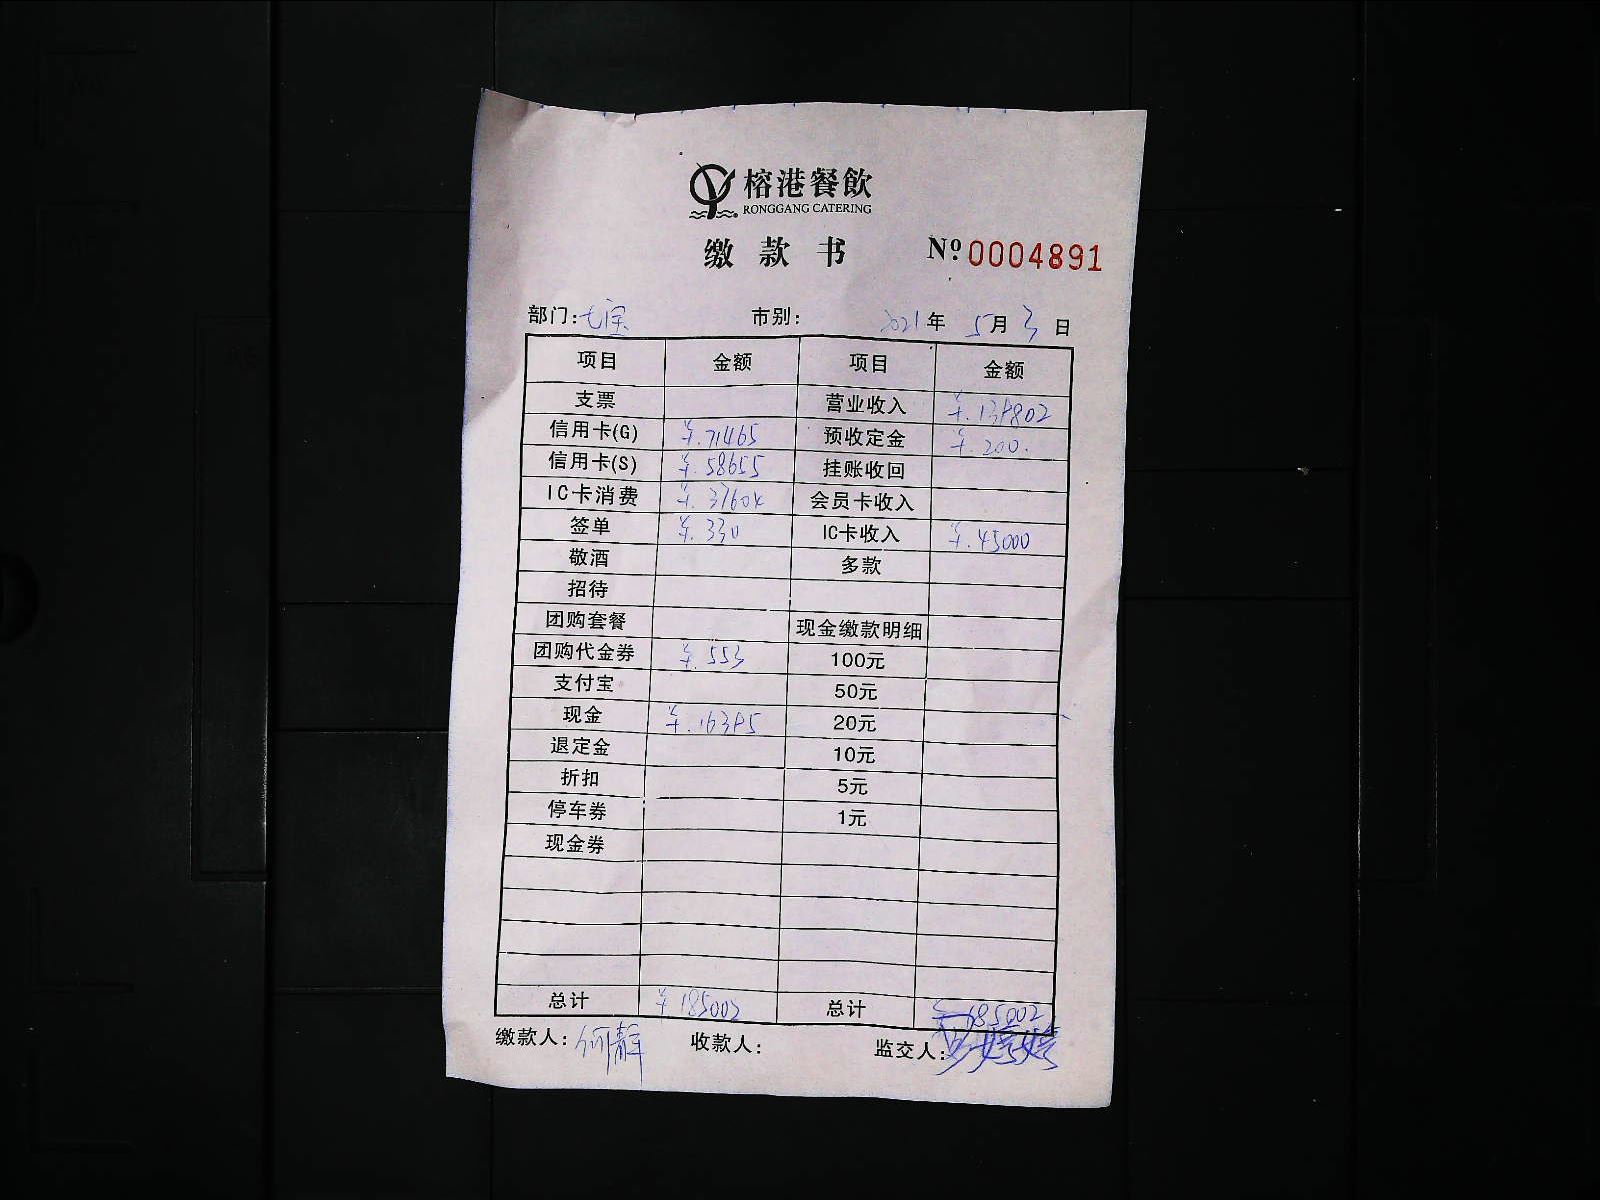 榕港餐飲
RONGGANG CATERING
缴款书 Nº 0004891
部门:七宝 市别: 2021年 5月 3日
项目 金额 项目 金额
支票 营业收入 ¥.139802
信用卡(G) ¥.71465 预收定金 ¥.200.
信用卡(S) ¥.58655 挂账收回
IC卡消费 ¥.37604 会员卡收入
签单 ¥.330 IC卡收入 ¥.45000
敬酒 多款
招待
团购套餐 现金缴款明细
团购代金券 ¥.553 100元
支付宝 50元
现金 ¥.16395 20元
退定金 10元
折扣 5元
停车券 1元
现金券
总计 ¥185002 总计 ¥185002
缴款人:何静 收款人: 监交人: